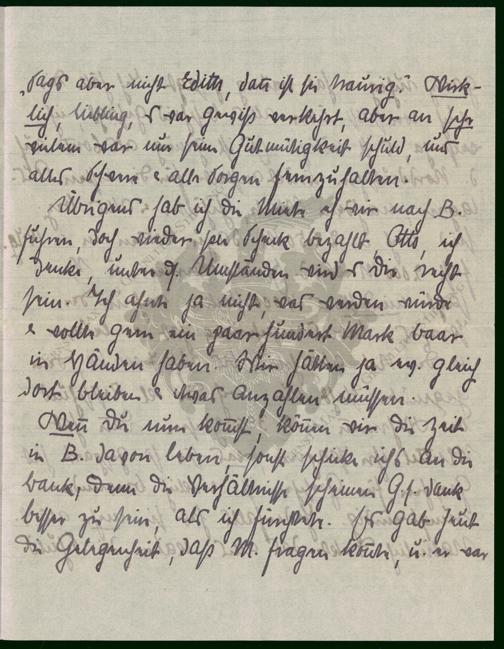 „Sags aber nicht Edith, dann ist sie traurig.“ Wirk-
lich, Liebling, es war gewiß verkehrt, aber an sehr
vielem war nur seine Gutmütigkeit schuld, uns
alles Schwere & alle Sorgen fernzuhalten.
Übrigens hab ich die Miete eh wir nach B.
fuhren, doch wieder per Scheck bezahlt, Otto, ich
denke, unter d. Umständen wird es Dir recht
sein. Ich ahnte ja nicht, was werden würde
& wollte gern ein paar hundert Mark baar
in Händen haben. Wir hätten ja ev. gleich
dort bleiben & etwas anzahlen müssen.
Wenn Du nun kommst, können wir die Zeit
in B. davon leben, sonst schicke ichs an die
Bank, denn die Verhältnisse scheinen G. s. Dank
besser zu sein, als ich fürchtete. Es gab heut
die Gelegenheit, daß M. fragen konnte, u. er war